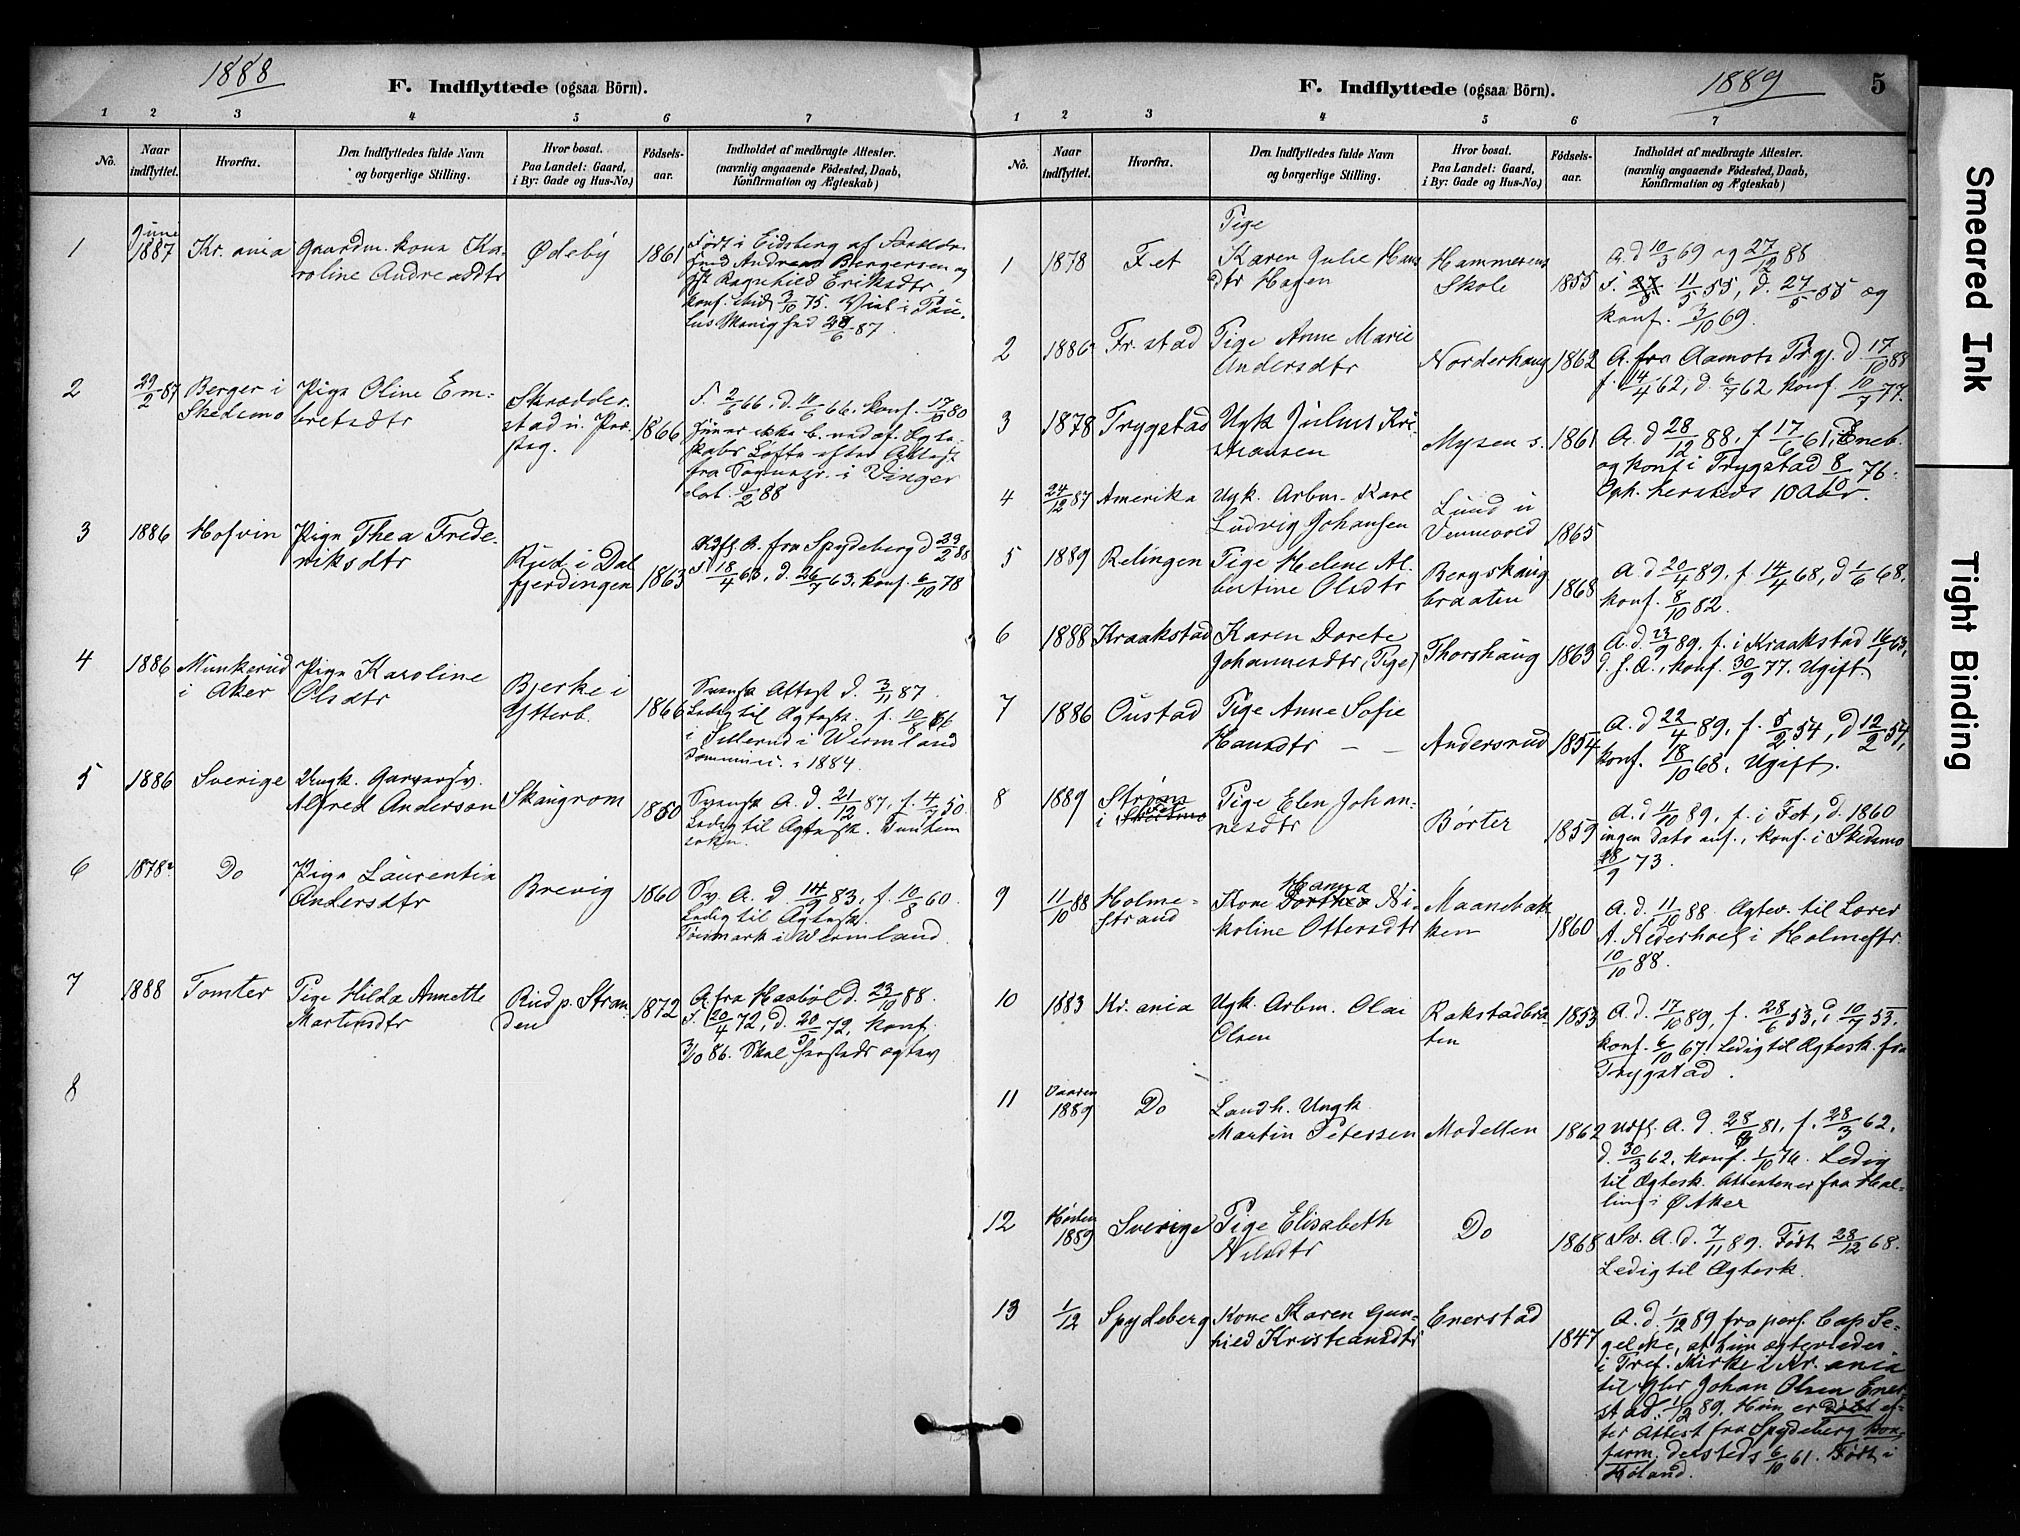 1888
F. Indflyttede (ogsaa Börn).
1 2 3 4 5 6 7
No.
Naar
indflyttet.
Hvorfra.
Den Indflyttedes fulde Navn
og borgerlige Stilling.
Hvor bosat.
Paa Landet: Gaard,
i By: Gade og Hus-No.)
Födsels-
aar.
Indholdet af medbragte Attester.
(navnlig angaaende Födested, Daab,
Konfirmation og Ægteskab)
1
Juni
1887
Kr. ania
Gaardm. kone Ka-
roline Andreasdtr
Ødeby
1861
Født i Eidsberg af Forældr.
Andreas Bergersen og
Ragnhild Eriksdtr,
konf. 3/10 75. Viet i
29/6 87.
2
29/2 87
Berger i
Skedsmo
Pige Oline Em-
bretsdtr
Skrædder-
stad u. Præ-
steg.
1866
F. 2/6 66, d. 10/6 66, konf. 17/10 80
Hun er ikke b. ved af. Egte-
skabs Løfte efter Attest
fra Sognepr. i Vinger
dat. 9/2 88
3
1886
Hofvin
Pige Thea Frede-
riksdtr
Rud i Dal
fjerdingen
1863
Udfl. A. fra Spydeberg d 29/2 88
F. 18/4 63, d. 26/7 63, konf. 6/10 78
4
1886
Munkerud
i Aker
Pige Karoline
Olsdtr
Bjerke i
Ytterb.
1866
Svensk Attest d. 3/11 87.
Ledig til Ægtesk. f. 10/8 66
i Sillerud i Wermland
i 1884.
5
1886
Sverige
Ungk. Garversv.
Alfred Anderson
Skaugrom
1850
Svensk A. d. 21/12 87, f. 4/7 50.
Ledig til Ægtesk.
sokn.
6
1878
Do
Pige Laurentia
Andersdtr
Brevig
1860
Sv. A. d. 14/9 83, f. 10/8 60.
Ledig til Ægtesk.
Tösmark i Wermland.
7
1888
Tomter
Pige Hilda Annette
Martinsdtr
Rud p. Stran-
den
1872
A. fra Haabøl d. 23/10 88.
F. 20/4 72, d. 20/5 72, konf.
3/10 86. Skal hersteds ægtev
8
1889
5
F. Indflyttede (ogsaa Börn).
1 2 3 4 5 6 7
No.
Naar
indflyttet.
Hvorfra.
Den Indflyttedes fulde Navn
og borgerlige Stilling.
Hvor bosat.
Paa Landet: Gaard,
i By: Gade og Hus-No.)
Födsels-
aar.
Indholdet af medbragte Attester.
(navnlig angaaende Födested, Daab,
Konfirmation og Ægteskab)
1
1878
Fet
Pige
Karen Julie Hans
dtr Hagen
Hammerens
Skole
1855
A. d 10/3 69 og 27/12 88
F. 11/5 55, d. 27/5 55 og
konf. 3/10 69.
2
1886
Fr. stad
Pige Anne Marie
Andersdtr
Norderhaug
1862
A. fra Aamots Prgj. d. 17/10 88
f. 14/4 62, d. 6/7 62 konf. 10/7 77.
3
1878
Trygstad
Ugk Julius Kri-
stiansen
Mysen s.
1861
A. d 28/12 88, f 17/6 61 i Eneb.
og konf i Trygstad 8/10 76.
Oph. hersteds 10 Aar.
4
24/12 87
Amerika
Ugk. Arbm. Karl
Ludvig Johansen
Lund u
Vennevold
1865
5
1889
Relingen
Pige Helene Al-
bertine Olsdtr
Bergskaug
braaten
1868
A. d 20/4 89, f. 14/4 68, d 1/6 68,
konf. 8/10 82.
6
1888
Kraakstad
Karen Dorete
Johannesdtr (Pige)
Thorshaug
1863
A. d. 23/9 89. f. i Kraakstad 16/1 63,
d. s. A., konf. 30/9 77. Ugift.
7
1886
Oustad
Pige Anne Sofie
Hansdtr — —
Andersrud
1854
A. d. 22/4 89, f. 5/2 54, d 12/2 54,
konf. 18/10 68. Ugift.
8
1889
Strøm
i Fet
Pige Elen Johan-
nesdtr
Børter
1859
A. d. 4/10 89, f. i Fet, d. 1860
ingen Dato anf., konf. i Skedsmo
28/9 73.
9
11/10 88
Holme-
strand
Hanna
Kone Dorthea Ni-
koline Ottersdtr
Maanebak-
ken
1860
A. d. 11/10 88. Ægtev. til Lærer
A. Nederhoel i Holmestr.
10/10 88.
10
1883
Kr. ania
Ugk. Arbm. Olai
Olsen
Rakstadbra-
ten
1853
A. d. 17/10 89, f. 28/6 53, d 10/7 53.
konf. 6/10 67. Ledig til Ægtesk. fra
Trygstad.
11
Vaaren
1889
Do
Landh. Ungk
Martin Petersen
Modellen
1862
Udfl. A. d. 28/8 81, f. 28/3 62.
d. 30/3 62, konf. 1/10 76. Ledig
til Ægtesk. Attesten er fra Hal-
ling i Ø Aker
12
Høsten
1889
Sverige
Pige Elisabeth
Nilsdtr
Do
1868
Sv. A. d. 7/11 89. Født 28/12 68.
Ledig til Ægtesk.
13
1/12
Spydeberg
Kone Karen Gun-
hild Kristiansdtr
Enerstad
1847
A. d. 1/12 89 fra pers. Cap Se-
gelcke, at hun ægteviedes
i Tref. Kirke i Kr. ania
til Gbr Johan Olsen Ener-
stad 1/12 89. Hun er døbt ef-
ter Attest fra Spydeberg kon-
firm. dersteds 6/10 61. Født i
Høland.
Smeared Ink
Tight Binding